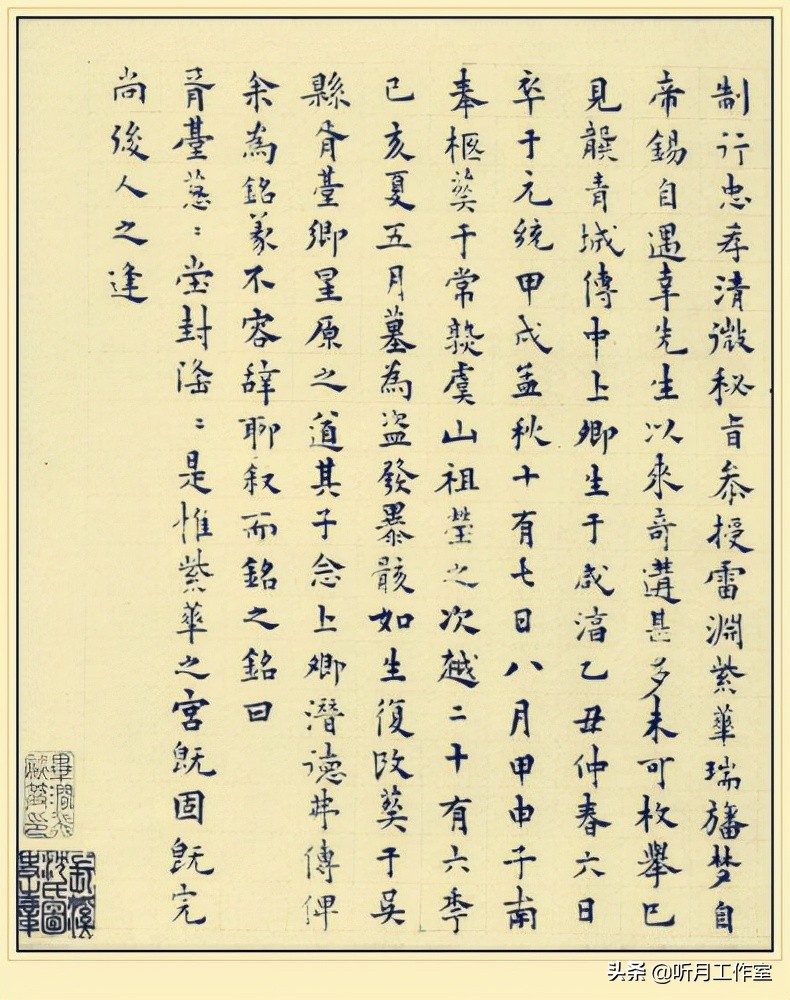 制行忠孝清微秘旨叅授雷淵紫華瑞旛梦自
帝錫自遇幸先生以來奇遘甚多未可枚舉已
見龔青城傳中上卿生于咸淳乙丑仲春六日
卒于元統甲戌孟秋十有七日八月甲申子南
奉柩葬于常熟虞山祖塋之次越二十有六季
已亥夏五月墓為盜發暴骸如生復改葬于吳
縣胥臺鄉星原之道其子念上卿潛德弗傳俾
余為銘義不容辭聊叙而銘之銘曰
胥臺蔥〻堂封隆〻是惟紫華之宮旣固旣完
尚後人之逢
头条 @听月工作室